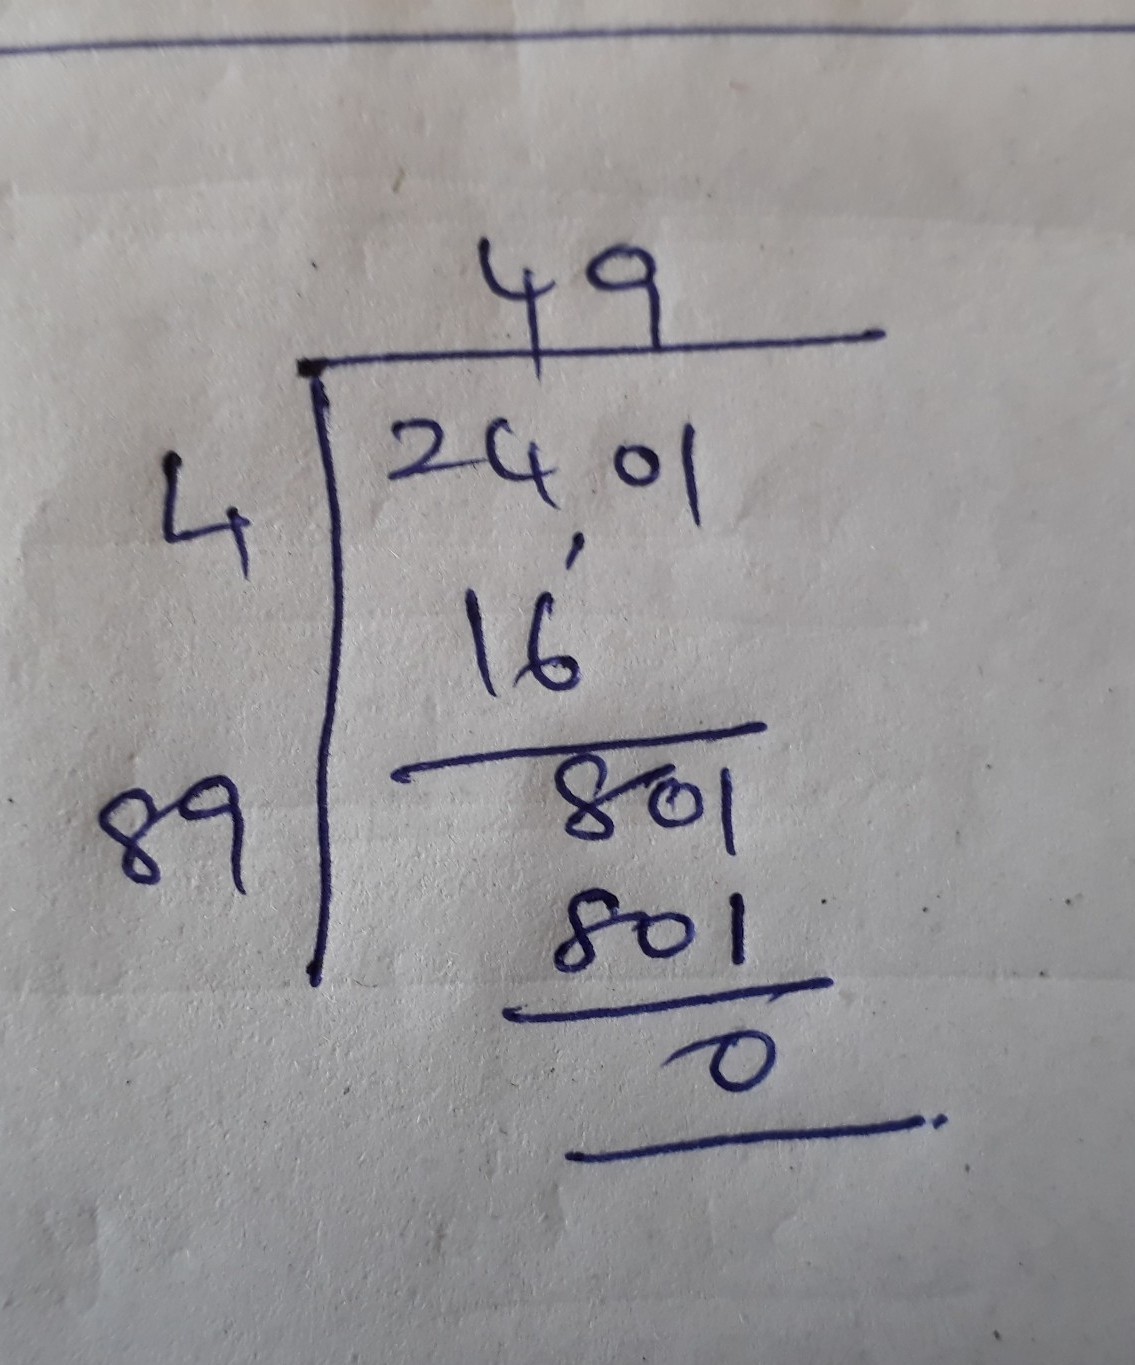 49
4 2401
16
89 801
801
0